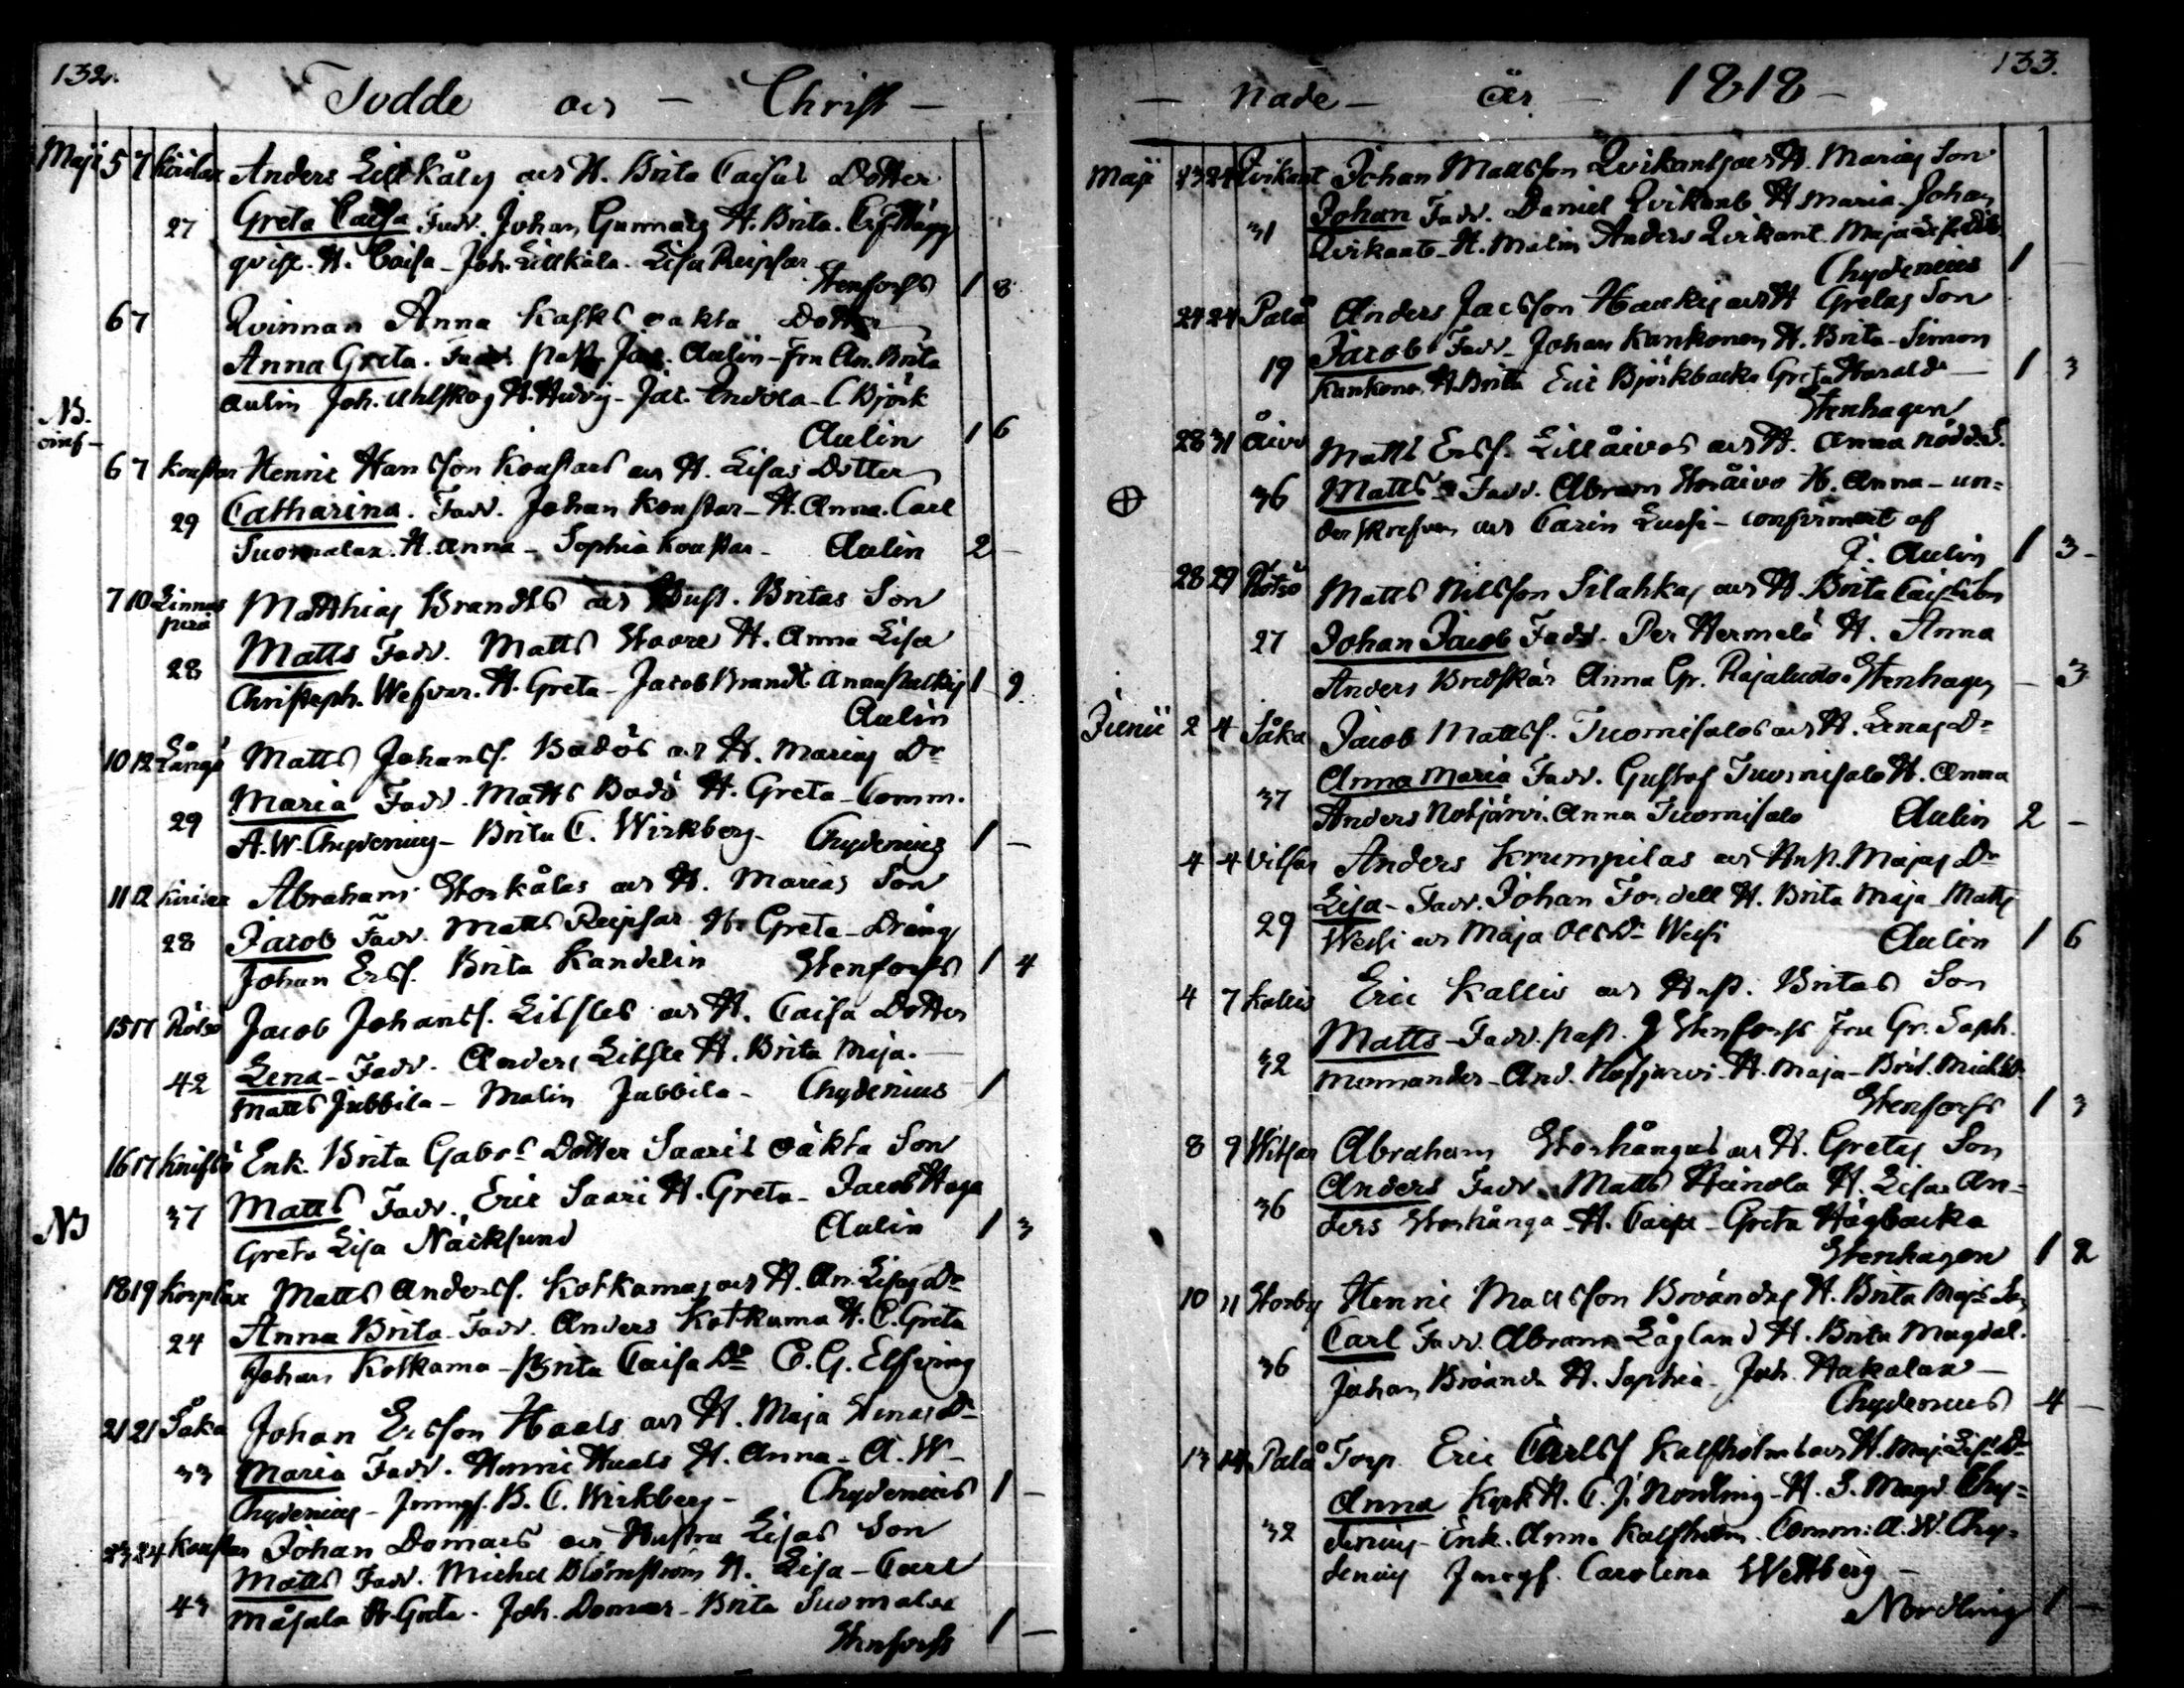 132.
Födde och - Christ -
Maji 5 7 Kirilax Anders Lillkåly och H. Brita Caisas Dotter
27 Greta Caisa Fadd. Johan Gunnars H. Brita. Eric Hägg
qvist. H. Caisa - Joh. Lillkåla. Lisa Reipsar
Stenfors 1 8
6 7 Qvinnan Anna Kasks oäkta Dotter
Anna Greta. Fadd. Past. Jac. Aulin - Fru An. Brita
Aulin Joh. Uhlskog H. Hedvig - Jac. Indola - C Björk
NB.
Aulin 1 6
6 7 Konstar Henric Hansson Konstars och H. Lisas Dotter
29 Catharina. Fadd. Johan Konstar - H. Anna. Carl
Suomalax. H. Anna - Sophia Konstar - Aulin 2 -
7 10 Linnas
perä
Matthias Brandts och Hust. Britas Son
28 Matts Fadd. Matts Stoore H. Anna Lisa
Christoph. Wesvar. H. Greta - Jacob Brandt 1 9
Aulin
10 12 Långö Matts Johanss. Badös och H. Marias Dr
29 Maria Fadd. Matts Badö H. Greta - Comm.
A. W. Chydenius - Brita C. Wirkberg - Chydenius 1 -
11 12 Kirilax Abraham Storkålas och H. Marias Son
28 Jacob Fadd. Matts Reipsar H. Greta - Dräng
Johan Erss. Brita Kandelin Stenfors 1 4
15 17 Rötsö Jacob Johanss. Lillsles och H. Caisa Dotter
42 Lena - Fadd. Anders Lillsle H. Brita Maja. -
Matts Jubbila - Malin Jubbila - Chydenius 1
16 17 Knifsö Enk. Brita Gabrs Dotter Saaris oäkta Son
37 Matts Fadd. Eric Saari H. Greta - Jacob Haga
NB
Greta Lisa Näcksund Aulin 1 3
18 19 Korplax Matts Anderss. Kotkamas och H. An. Lisas Dr
24 Anna Brita - Fadd. Anders Kotkama H. C. Greta
Johan Kotkama - Brita Caisa Dr C. G. Elfving
21 21 Såka Johan Ersson Haals och H. Maja Stinas Dr
33 Maria Fadd. Henric Haals H. Anna - A. W -
Chydenius - Jungf. B. C. Wirkberg - Chydenius 1 -
23 24 Konstar Johan Domars och Hustru Lisas Son
Matts Fadd. Michel Blomström H. Lisa - Carl
43 Måsala H. Greta. Joh. Domar - Brita Suomalax
Stenfors 1 -
133.
- Nåde - år - 1818 -
Maji 23 24 Qvikant Johan Mattsson Qvikants och H. Marias Son
31 Johan Fadd. Daniel Qvikant H Maria - Johan
Qvikant - H. Malin Anders Qvikant. Maja
Chydenius 1
24 24 Palå Anders Jacsson Haukis och H Gretas Son
19 Jacob Fadd. Johan Kankonen H. Brita - Simon
Kankonen H. Brita Eric Björkbacka Greta Harald - 1 3
Stenhagen
28 31 Åivo Matts Erss. Lillåivos och H. Anna nödd. S.
36 Matts Fadd. Abram Storåivo H. Anna - un=
derskrefven och Carin Lussi - confirmert af
J. Aulin 1 3 -
28 29 Rötsö Matts Nilsson Silahkas och H. Brita Caisas Son
27 Johan Jacob Fadd. Per Hermelö H. Anna
Anders Bredskär Anna Gr. Rajaludo Stenhagen - 3
Junii 2 4 Såka Jacob Mattss. Tuomisalos och H. Lenas Dr
37 Anna Maria Fadd. Gustaf Tuomisalo H. Anna
Anders Notjärvi. Anna Tuomisalo Aulin 2 -
4 4 Vilsar Anders Krumpilas och Hust. Majas Dr
29 Lisa - Fadd. Johan Fordell H. Brita Maja - Matts
Wessi och Maja Olsdr Wessi Aulin 1 6
4 7 Kallis Eric Kallis och Hust. Britas Son
32 Matts - Fadd. Past. J Stenfors Fru Gr. Soph.
Momander - And. Notjärvi - H. Maja - Brit. Michdr.
Stenfors 1 3
8 9 Witsar Abraham Storhångas och H. Gretas Son
36 Anders Fadd. Matts Heinola H. Lisa An=
ders Storhånga - H. Caisa - Greta Högbacka
Stenhagen 1 2
10 11 Storby Henric Mattsson Broändas H. Brita Majs Son
36 Carl Fadd. Abram Lågland H. Brita Magdal.
Johan Broända H. Sophia - Joh. Hakalax -
Chydenius 4 -
13 14 Palå Torp. Eric Carlss Kalfholms och H. Maj. Lis. Dr
32 Anna Kyrkh. C. J. Nordling - H. S. Magd. Chy=
denius - Enk. Anna Kalfholm. Comm: A. W. Chy=
denius Jungf. Carolina Wettberg -
Nordling 1 -